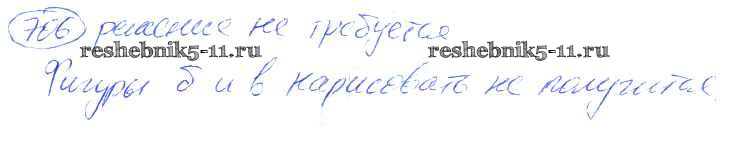 766 решение не требуется
reshebnik5-11.ru reshebnik5-11.ru
Фигуры б и в нарисовать не получится.